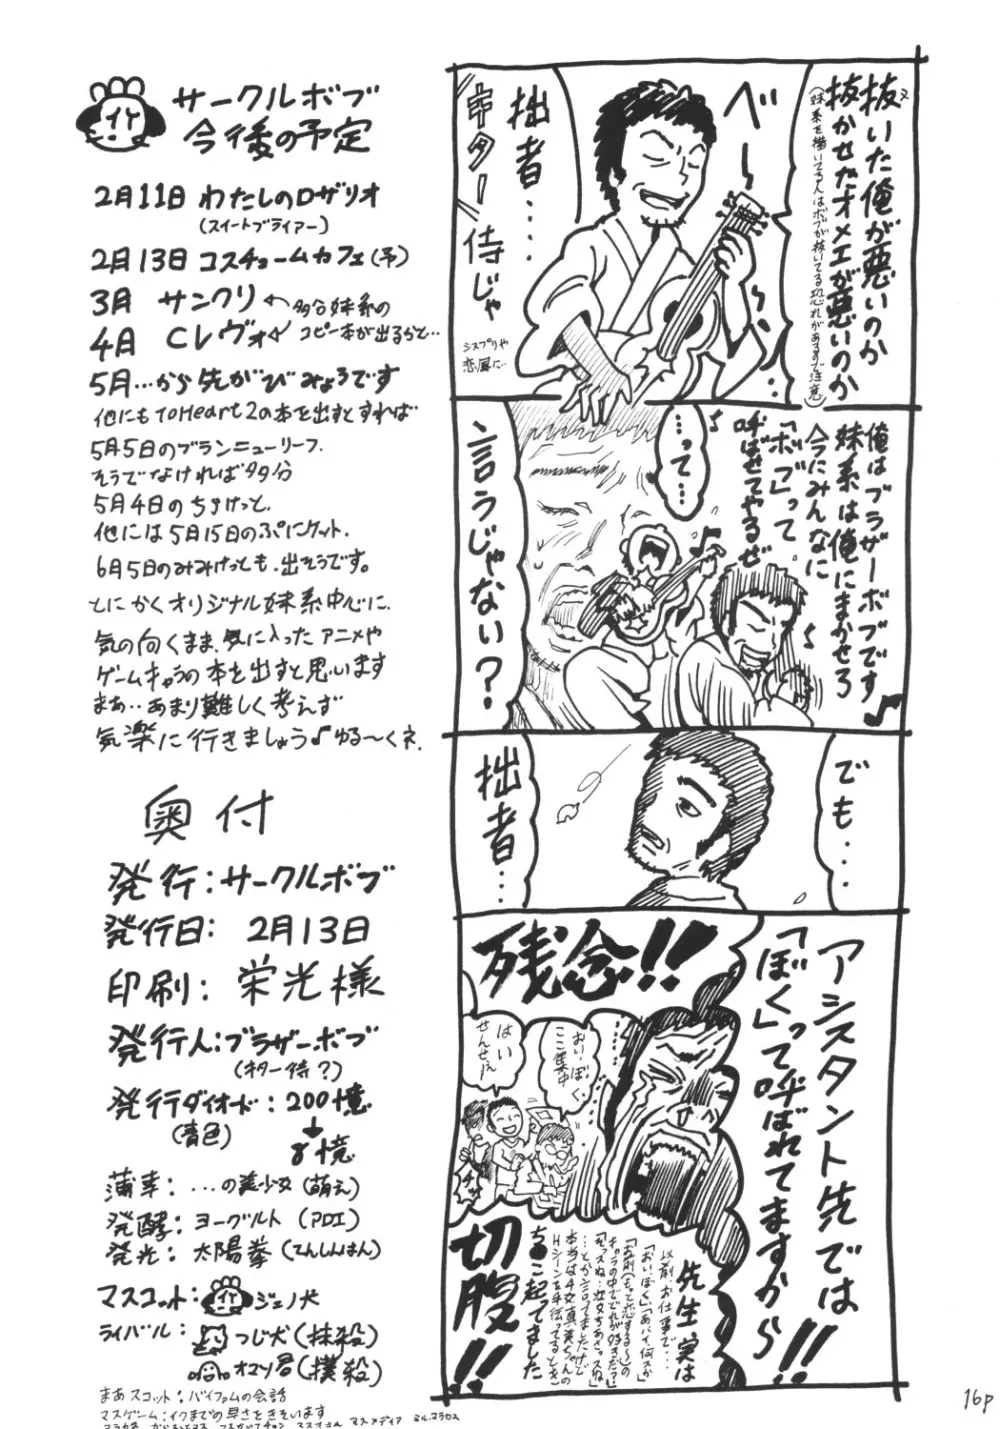 サークルボブ
今後の予定
2月11日 わたしのロザリオ
(スイートブライアー)
2月13日 コスチュームカフェ(予)
3月 サンクリ ← 多分妹系の
4月 Cレヴォ ← コピー本が出るかと…
5月…から先がびみょうです
他にもToHeart2の本を出すとすれば
5月5日のブランニューリーフ.
そうでなければ多分
5月4日のちょけっと.
他には5月15日のぷにケット.
6月5日のみみけっとも.出そうです。
とにかくオリジナル妹系中心に.
気の向くまま.気に入ったアニメや
ゲームキャラの本を出すと思います
まあ..あまり難しく考えず
気楽に行きましょう♪ゆる〜くネ.
奥付
発行:サークルボブ
発行日: 2月13日
印刷: 栄光様
発行人:ブラザーボブ
(ギター侍?)
発行ダイオード:200憶
(青色) ↓
8憶
薄幸: ...の美少女(萌え)
発酵: ヨーグルト (PDI)
発光: 太陽拳(てんしんはん)
マスコット: ジェノ犬
ライバル: つじ犬(抹殺)
オマソ君(撲殺)
まあスコット:バイファムの会話
マスゲーム:イクまでの早さをきそいます
抜いた俺が悪いのか
抜かせたオメエが悪いのか
(妹系を描いてる人はボブが抜いてる恐れがあるので注意)
べ〜〜ン…
拙者...
ギター侍じゃ
シスプリや
恋風に…
俺はブラザーボブです
妹系は俺にまかせろ
今にみんなに
「ボブ」って
呼ばせてやるぜ
…って…
言うじゃない?
でも...
拙者...
アシスタント先では
「ぼく」って呼ばれてますから!!
残念!!
おい、ぼく.
ここ集中
はい
せんせぇ
先生実は
以前、お仕事で…
切腹!!
16p